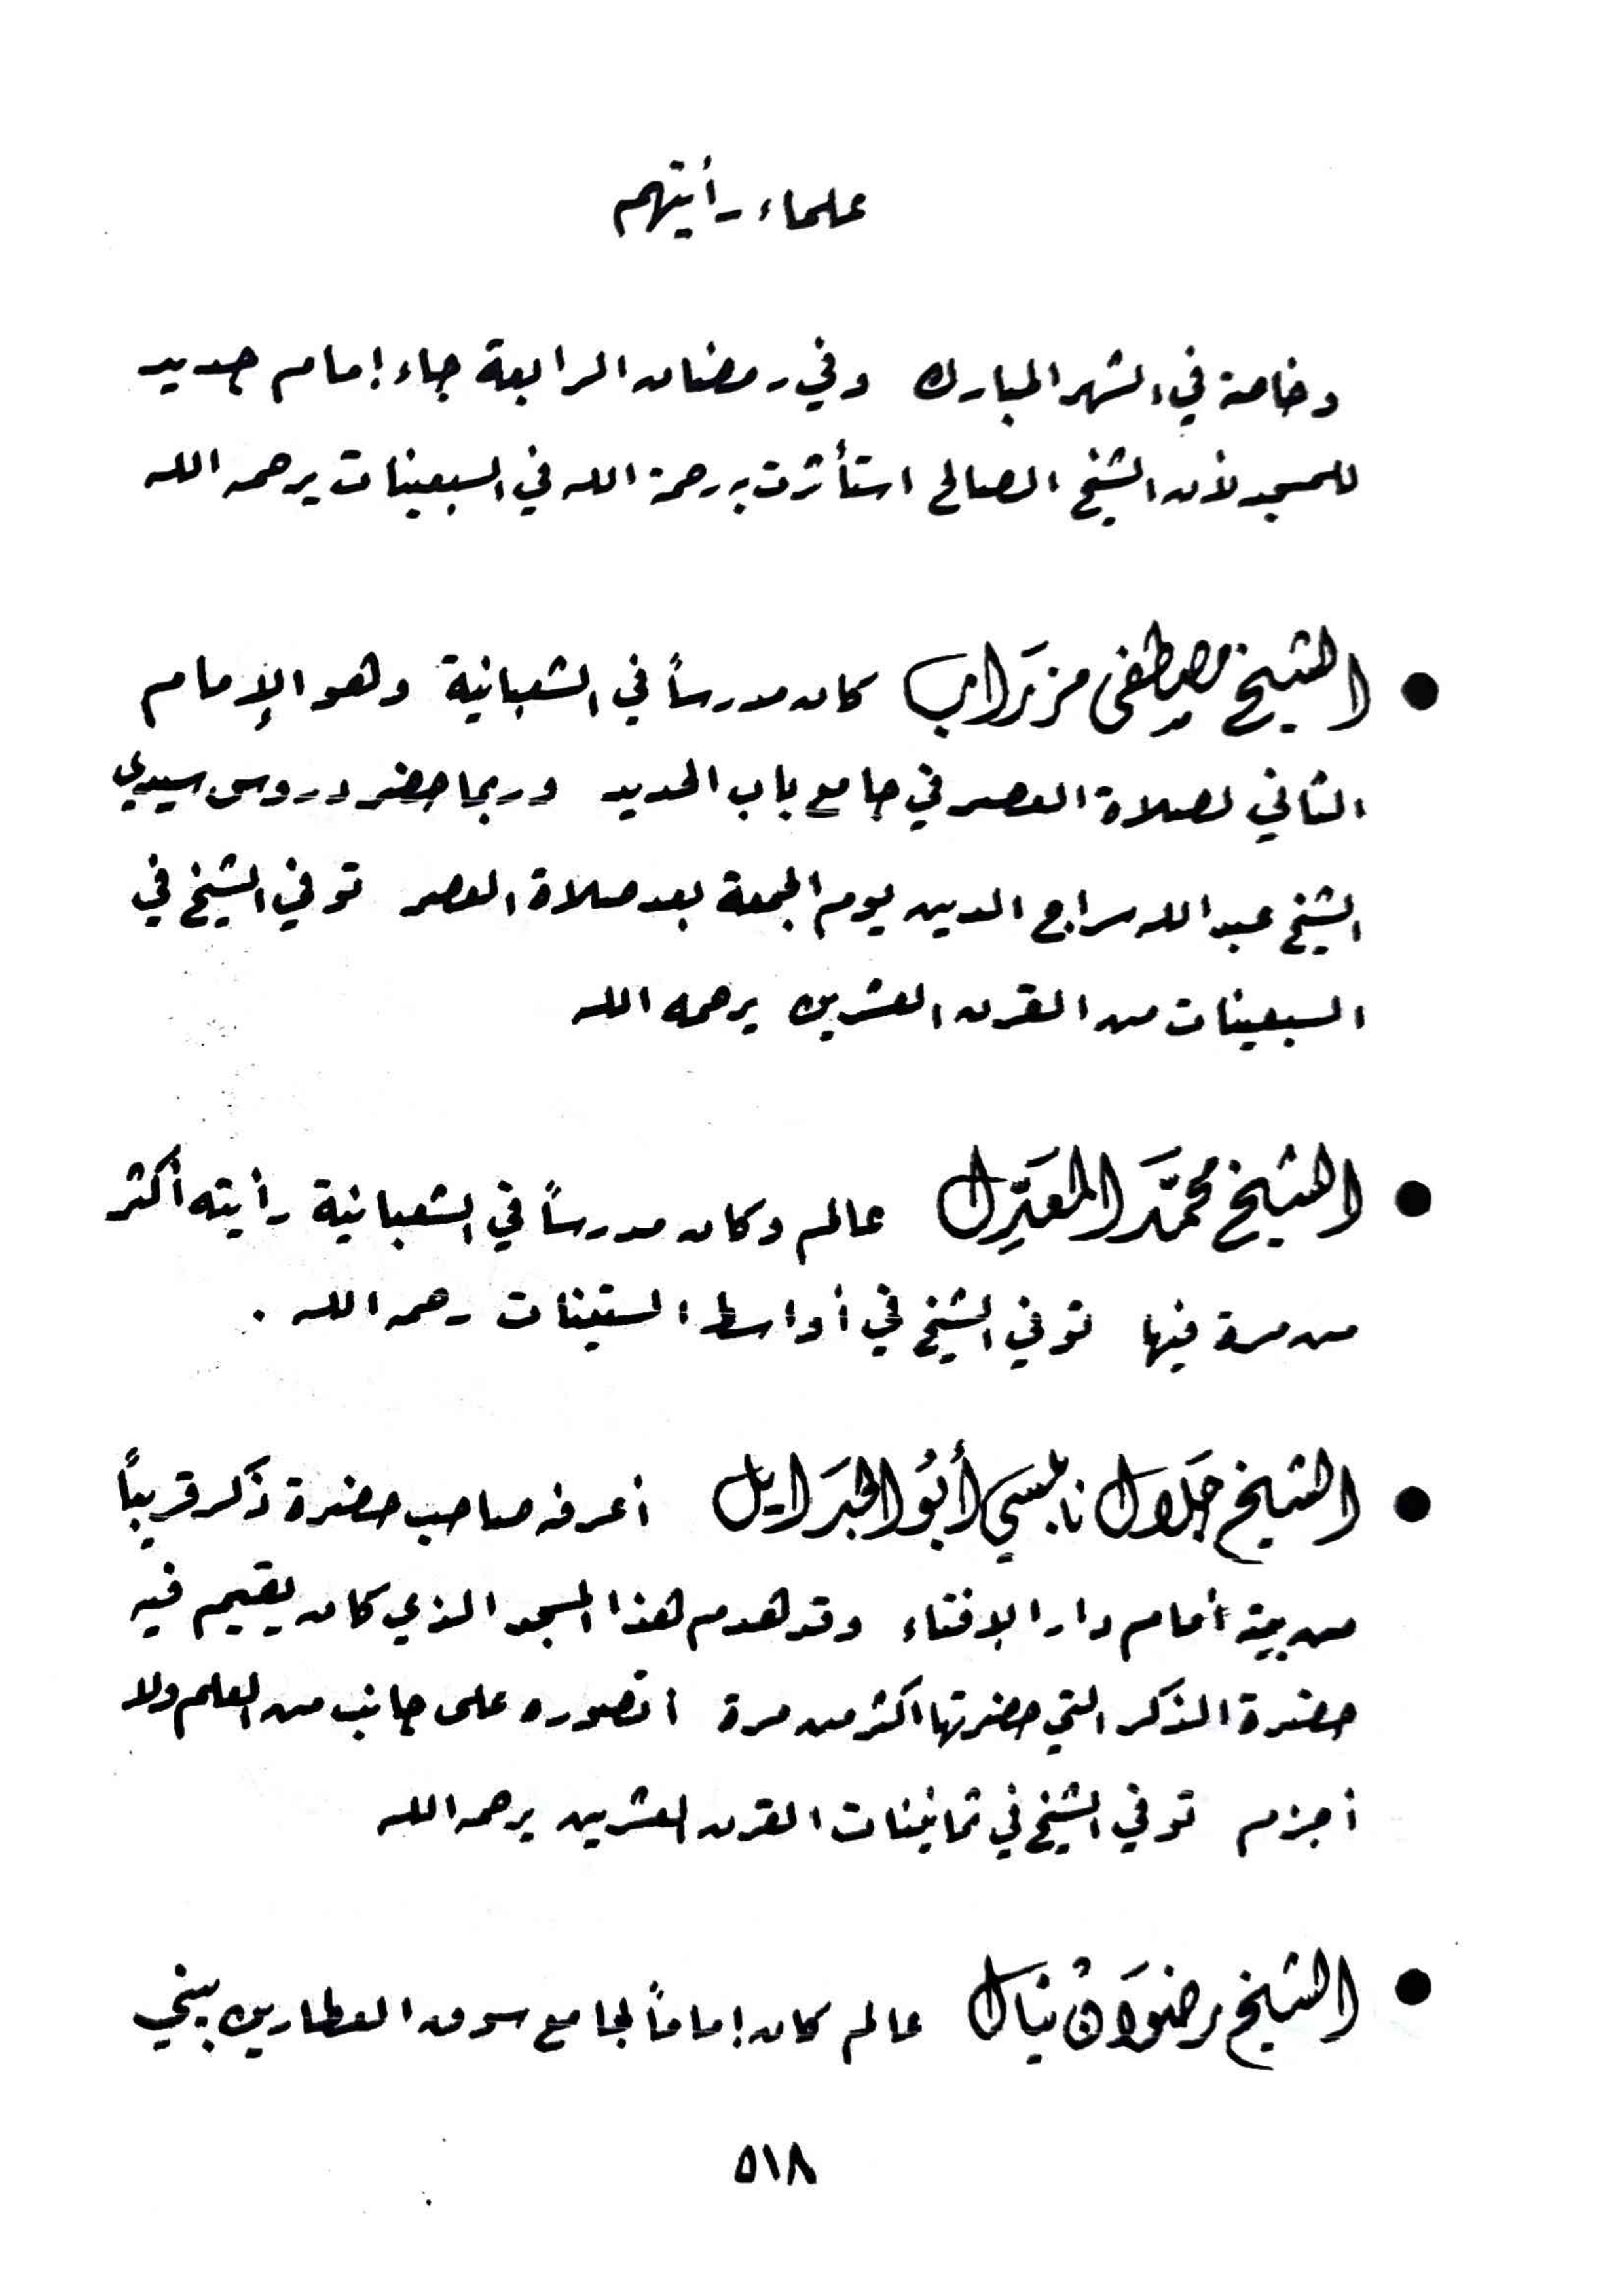 علماء رأيتهم
وخاصة في الشهر المبارك وفي رمضان الرابعة جاء إمام جديد
للمسجد لأن الشيخ الصالح استأثرت به رحمة الله في السبعينات يرحمه الله
● الشيخ مصطفى مزَراب كان مدرساً في الشعبانية وهو الإمام
الثاني لصلاة العصر في جامع باب الحديد وربما حضر دروس سيدي
الشيخ عبد الله سراج الدين يوم الجمعة بعد صلاة العصر توفي الشيخ في
السبعينات من القرن العشرين يرحمه الله
● الشيخ محمَّد المعَدِّل عالم وكان مدرساً في الشعبانية رأيته أكثر
من مرة فيها توفي الشيخ في أواسط الستينات رحمه الله .
● الشيخ جَلال نابلسي أبُو الجبَرايل أعرفه صاحب حضرة ذكر قريباً
من بيته أمام دار الإفتاء وقد هدم هذا المسجد الذي كان يقيم فيه
حضرة الذكر التي حضرتها أكثر من مرة أتصوره على جانب من العلم ولا
أجزم توفي الشيخ في ثمانينات القرن العشرين يرحمه الله
● الشيخ رضوَان نبال عالم كان إماماً لجامع سوق العطارين يبني
٥١٨